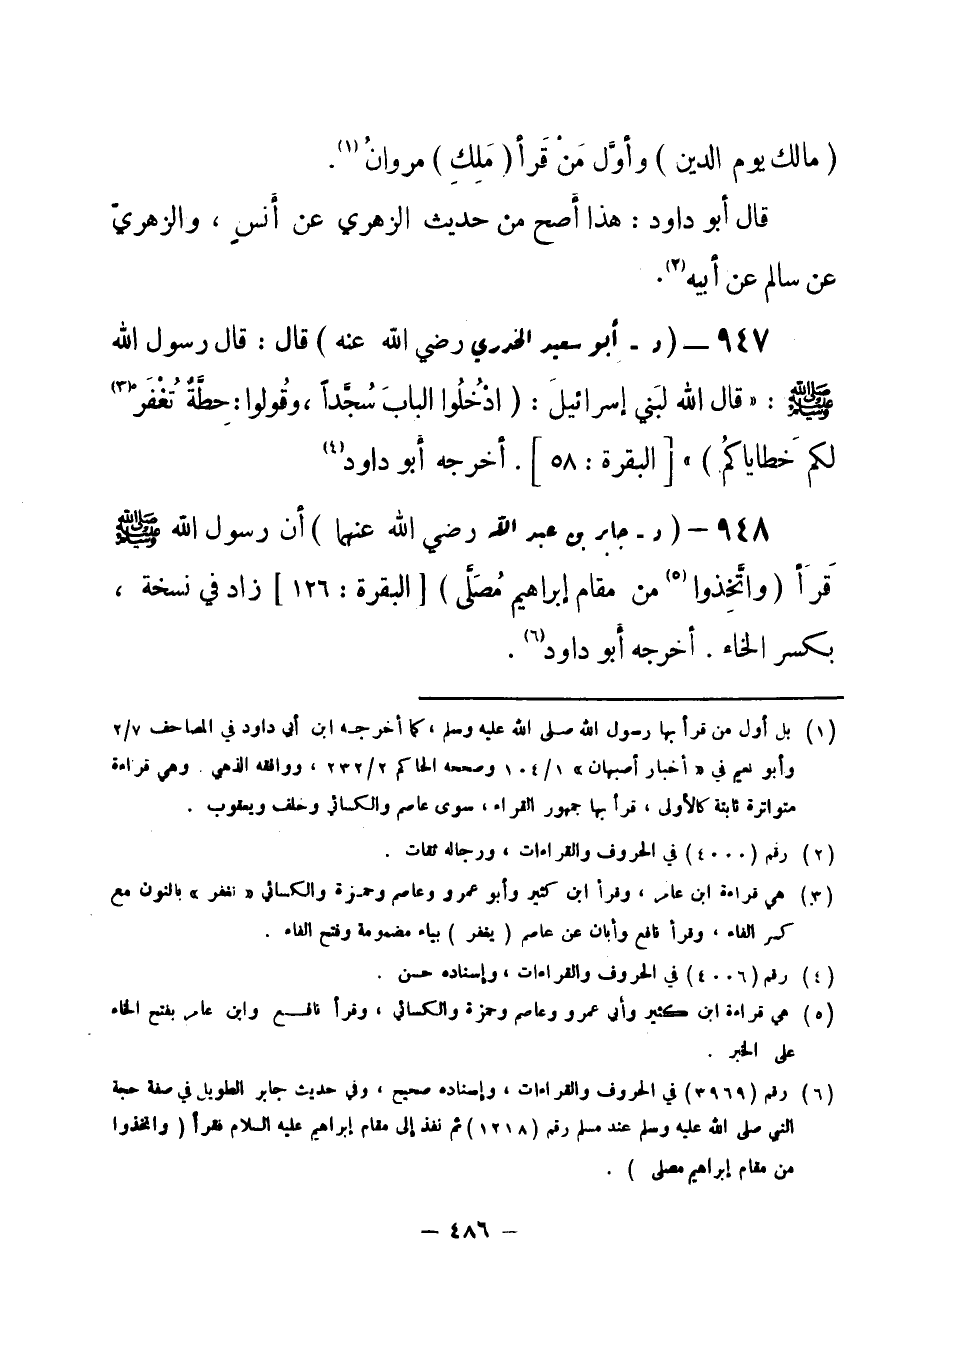 ( مالك يوم الدين ) وأوَّل مَنْ قَرأ ( مَلِكِ ) مروانُ(١).
قال أبو داود : هذا أصح من حديث الزهري عن أنسٍ ، والزهريّ
عن سالم عن أبيه(٢).
٩٤٧ — ( د - أبو سعيد الخدري رضي الله عنه ) قال : قال رسول الله
ﷺ : « قال الله لبَني إسرائيلَ : ( ادْخُلُوا البابَ سُجَّداً ، وقُولوا : حِطَّةٌ تُغْفَرْ(٣)
لكم خَطاياكُمْ ) » [ البقرة : ٥٨ ] . أخرجه أبو داود(٤)
٩٤٨ — ( د - جابر بن عبد الله رضي الله عنهما ) أن رسول الله ﷺ
قَرَأَ ( واتَّخِذوا(٥) من مقام إبراهيم مُصَلَّى ) [ البقرة : ١٢٦ ] زاد في نسخة ،
بكسر الخاء . أخرجه أبو داود(٦) .
(١) بل أول من قرأ بها رسول الله صلى الله عليه وسلم ، كما أخرجه ابن أبي داود في المصاحف ٢/٧
وأبو نعيم في « أخبار أصبهان » ١٠٤/١ وصححه الحاكم ٢٣٢/٢ ، ووافقه الذهبي . وهي قراءة
متواترة ثابتة كالأولى ، قرأ بها جمهور القراء ، سوى عاصم والكسائي وخلف ويعقوب .
(٢) رقم (٤٠٠٠) في الحروف والقراءات ، ورجاله ثقات .
(٣) هي قراءة ابن عامر ، وقرأ ابن كثير وأبو عمرو وعاصم وحمزة والكسائي « نغفر » بالنون مع
كسر الفاء ، وقرأ نافع وأبان عن عاصم ( يغفر ) بياء مضمومة وفتح الفاء .
(٤) رقم (٤٠٠٦) في الحروف والقراءات ، وإسناده حسن .
(٥) هي قراءة ابن كثير وأبي عمرو وعاصم وحمزة والكسائي ، وقرأ نافع وابن عامر بفتح الخاء
على الخبر .
(٦) رقم (٣٩٦٩) في الحروف والقراءات ، وإسناده صحيح ، وفي حديث جابر الطويل في صفة حجة
النبي صلى الله عليه وسلم عند مسلم رقم (١٢١٨) ثم نفذ إلى مقام إبراهيم عليه السلام فقرأ ( واتخذوا
من مقام إبراهيم مصلى ) .
— ٤٨٦ —